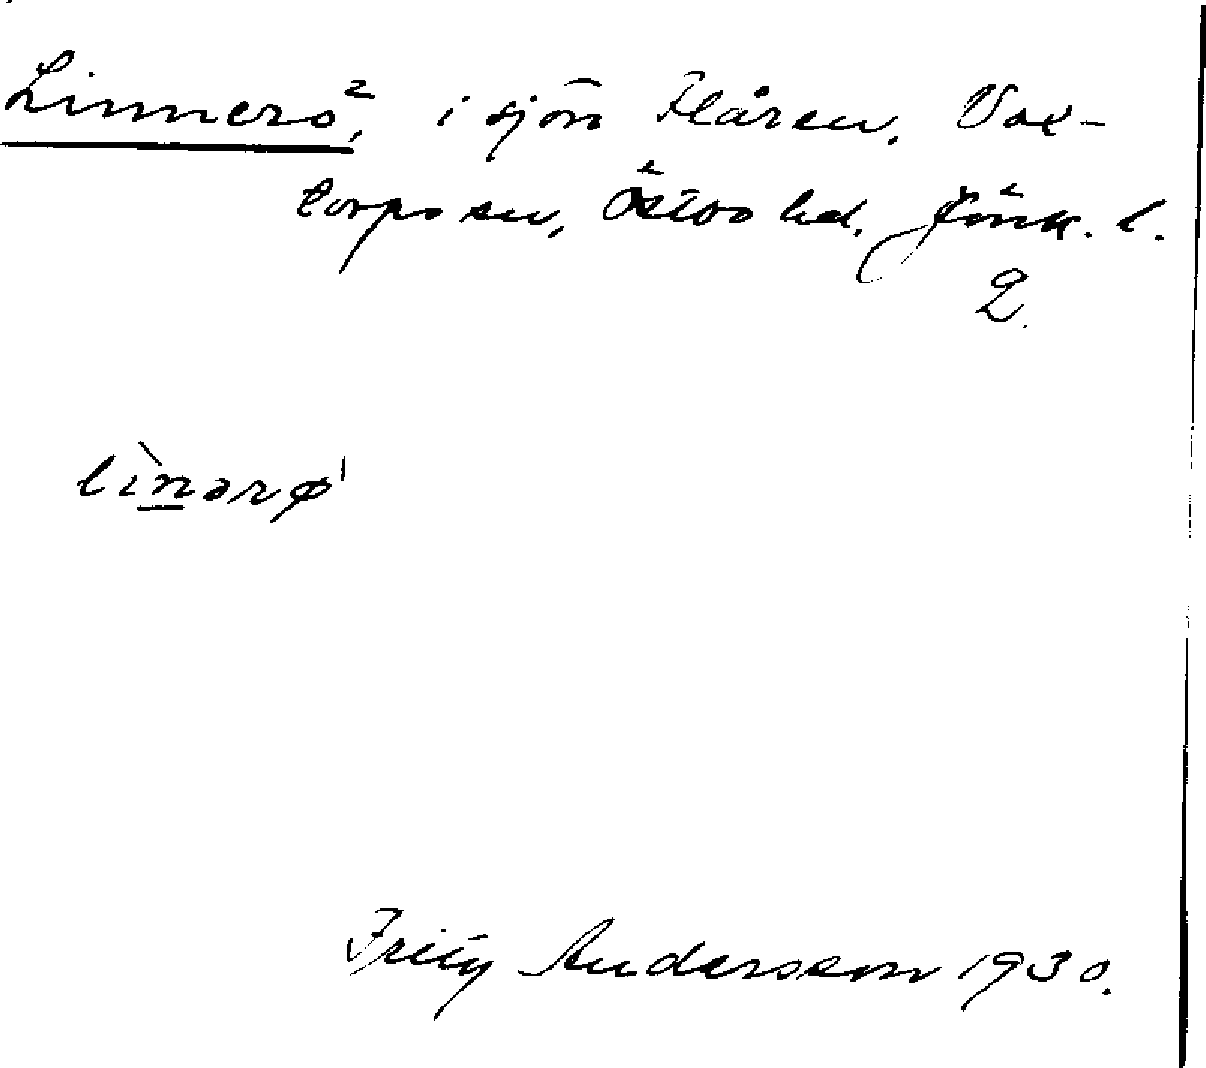 Linnerö, i sjön Flåren, Vox-
torps sn, Östbo hd, Jönk. l.
2.
lìnərø
Fritz Andersson 1930.